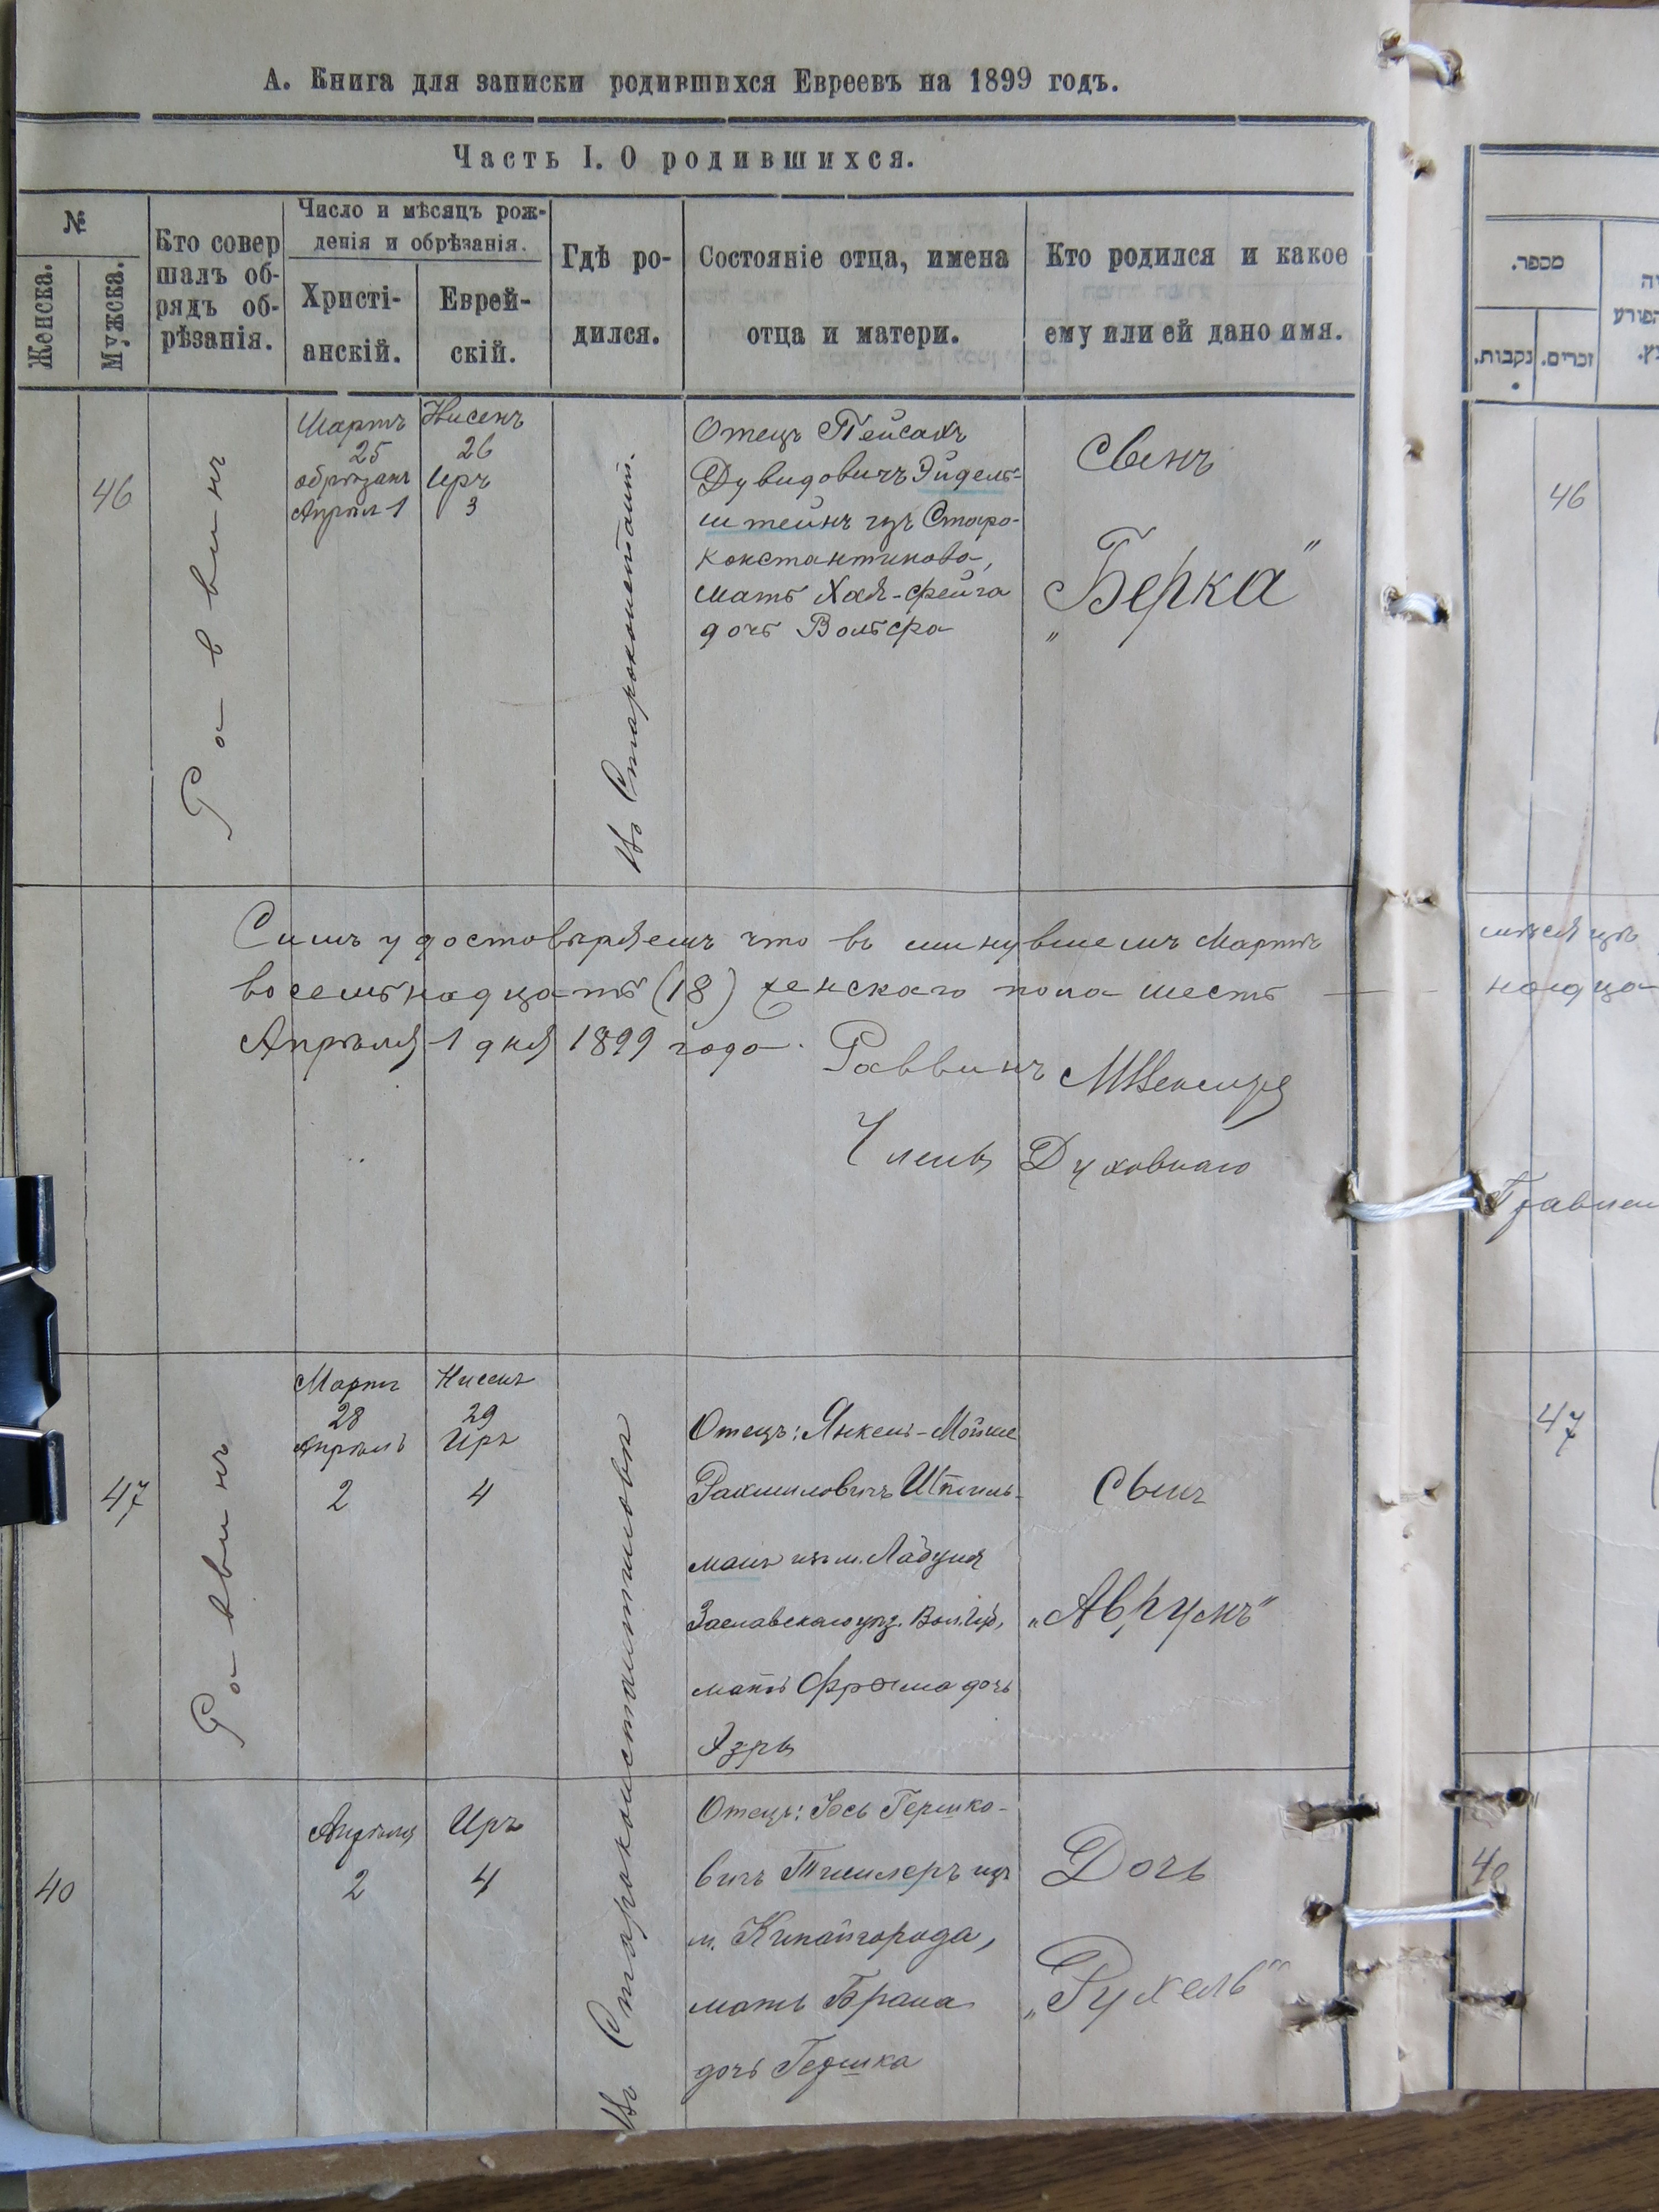 А. Книга для записки родившихся Евреевъ на 1899 годъ.
Часть I. О родившихся.
№
Женска.
Мужска.
Кто совер
шалъ об-
рядъ об-
рѣзанія.
Число и мѣсяцъ рож-
денія и обрѣзанія.
Христі-
анскій.
Еврей-
скій.
Гдѣ ро-
дился.
Состояніе отца, имена
отца и матери.
Кто родился и какое
ему или ей дано имя.
46
Раввинъ
Мартъ
25
обрѣзанъ
Апрѣл 1
Нисенъ
26
Иръ
3
Въ Староконстант.
Отецъ Пейсахъ
Дувидовичъ Эйдель-
штейнъ изъ Старо-
константинова,
мать Хая-Фейга
дочь Вольфа
Сынъ
„Берка"
Симъ удостовѣряемъ что въ минувшемъ Мартѣ
восемьнадцать (18) женскаго пола шесть
Апрѣля 1 дня 1899 года. Раввинъ
Члены Духовнаго
47
Раввинъ
Мартъ
28
Апрѣль
2
Нисенъ
29
Иръ
4
Отецъ: Янкель-Мойше
Рахмиловичъ
манъ изъ м. Лабуня
Заславскаго уѣз. Вол. губ.,
мать Фрома дочь
Азры
Сынъ
„Аврумъ"
40
Апрѣля
2
Иръ
4
Въ Староконстантиновѣ
Отецъ: Іось Гершко-
вичъ Тишлеръ изъ
м. Китайгорода,
мать Брана
дочь Гершка
Дочь
„Рухель"
מספר.
נקבות.
זכרים.
46
мѣсяцѣ
надца
47
40